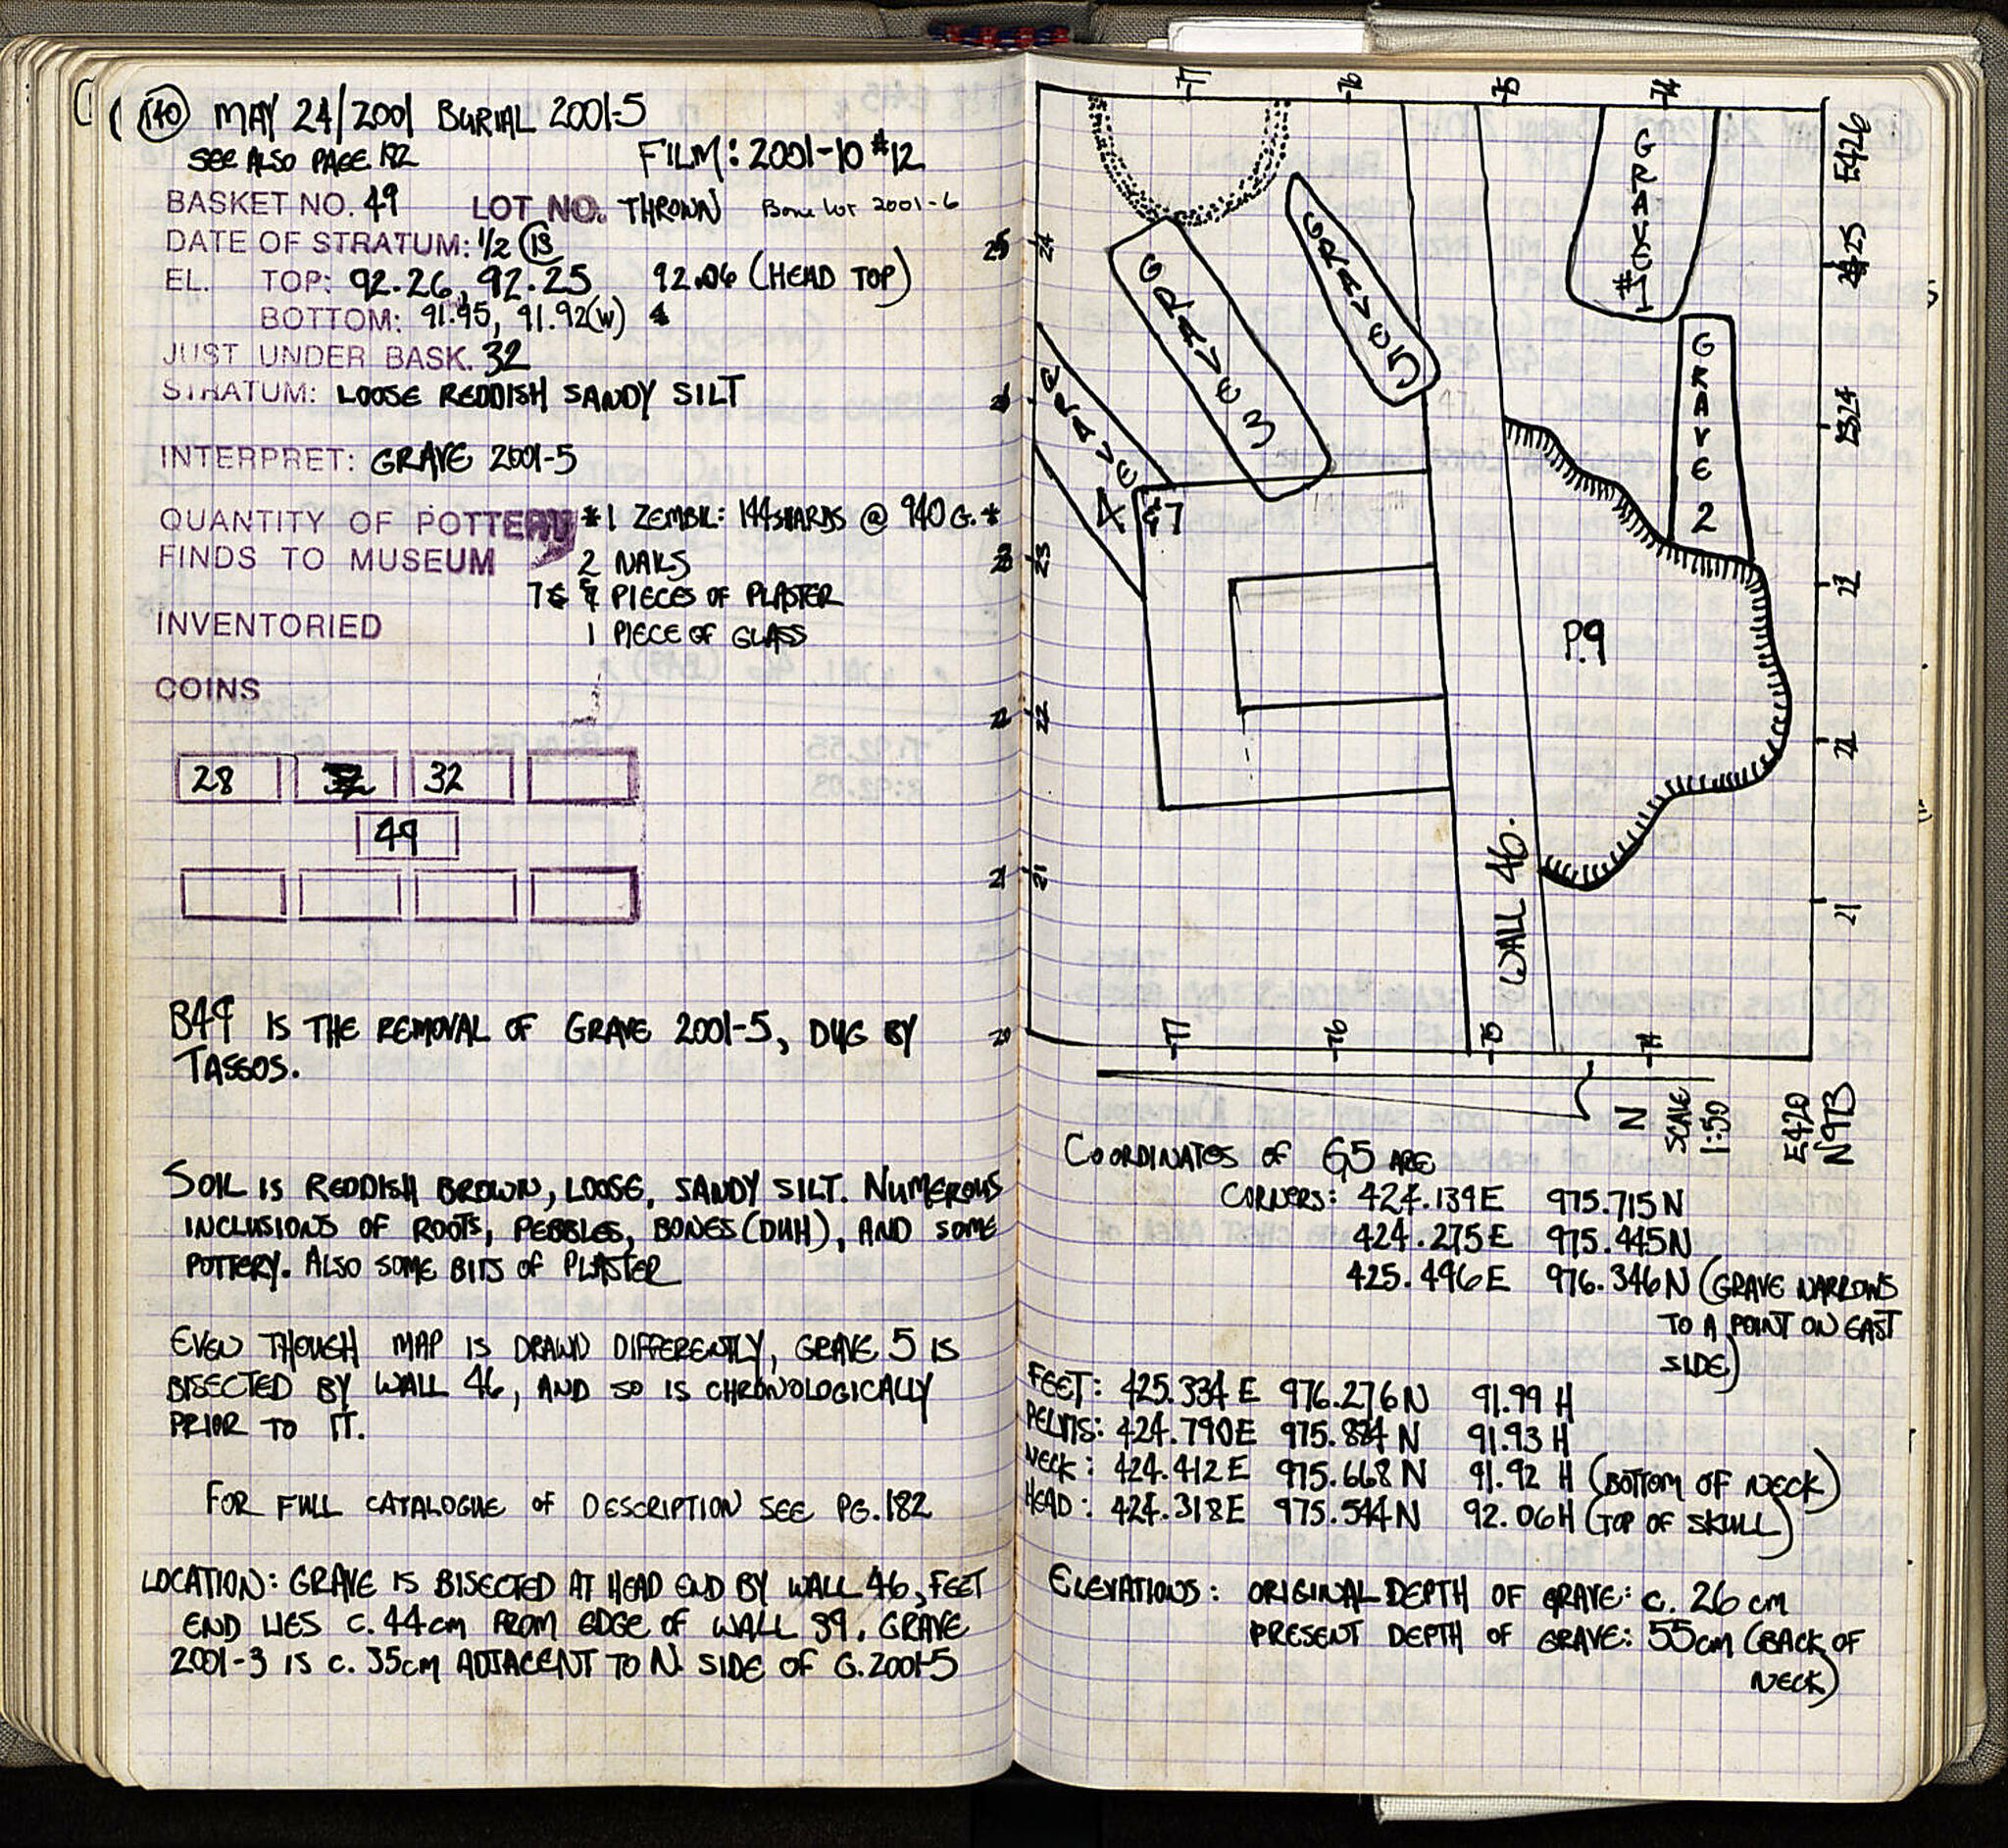 140 MAY 24/2001 BURIAL 2001-5
SEE ALSO PAGE 182
FILM: 2001-10 #12
BASKET NO. 49 LOT NO. THROWN Bone Lot 2001-6
DATE OF STRATUM: 1/2 13
EL. TOP: 92.26, 92.25 92.06 (HEAD TOP)
BOTTOM: 91.95, 91.92(W)
JUST UNDER BASK. 32
STRATUM: LOOSE REDDISH SANDY SILT
INTERPRET: GRAVE 2001-5
QUANTITY OF POTTERY *1 ZEMBIL: 144 SHARDS @ 940 G.*
FINDS TO MUSEUM 2 NAILS
PIECES OF PLASTER
INVENTORIED 1 PIECE OF GLASS
COINS
28 32 32
49
B49 IS THE REMOVAL OF GRAVE 2001-5, DUG BY
TASSOS.
SOIL IS REDDISH BROWN, LOOSE, SANDY SILT. NUMEROUS
INCLUSIONS OF ROOTS, PEBBLES, BONES (DUH), AND SOME
POTTERY. ALSO SOME BITS OF PLASTER
EVEN THOUGH MAP IS DRAWN DIFFERENTLY, GRAVE 5 IS
BISECTED BY WALL 46, AND SO IS CHRONOLOGICALLY
PRIOR TO IT.
FOR FULL CATALOGUE OF DESCRIPTION SEE PG. 182
LOCATION: GRAVE IS BISECTED AT HEAD END BY WALL 46, FEET
END LIES c. 44cm FROM EDGE OF WALL 39. GRAVE
2001-3 IS c. 35cm ADJACENT TO N. SIDE OF G.2001-5
77 76 75 74
E426
25
24
GRAVE #1
GRAVE 5
GRAVE 3
GRAVE 2
GRAVE 4 & 7
25 24 23 22 21 20
24 23 22 21
24 22 21 21
P.9
WALL 46.
77 76 75 74
N
SCALE
1:50
E420
N973
COORDINATES OF G5 ARE
CORNERS: 424.139E 975.715N
424.275E 975.445N
425.496E 976.346N (GRAVE NARROWS
TO A POINT ON EAST
SIDE)
FEET: 425.334 E 976.276N 91.99 H
PELVIS: 424.790E 975.884 N 91.93 H
NECK: 424.412E 975.668N 91.92 H (BOTTOM OF NECK)
HEAD: 424.318E 975.544N 92.06H (TOP OF SKULL)
ELEVATIONS: ORIGINAL DEPTH OF GRAVE: c. 26 cm
PRESENT DEPTH OF GRAVE: 55cm (BACK OF
NECK)